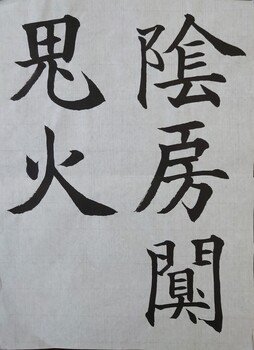 陰房闃
鬼火